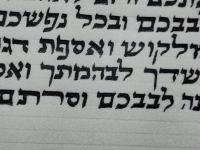 לבבכם ובכל נפשכם
ומלקוש ואספת דג
שדך לבהמתך ואכ
לבבכם וסרתם